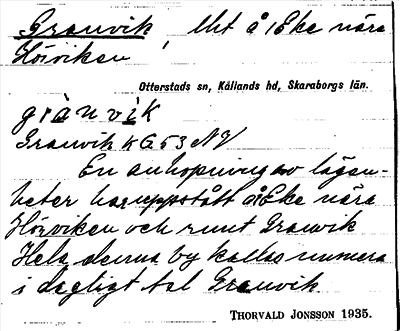 Granvik, lht å Eke nära
Hörviken
Otterstads sn, Kållands hd, Skaraborgs län.
grànvìk
Granvik k G53 NV
En anhopning av lägen-
heter har uppstått å Eke nära
Hörviken och runt Granvik
Hela denna by kallas numera
i dagligt tal Granvik.
THORVALD JONSSON 1935.